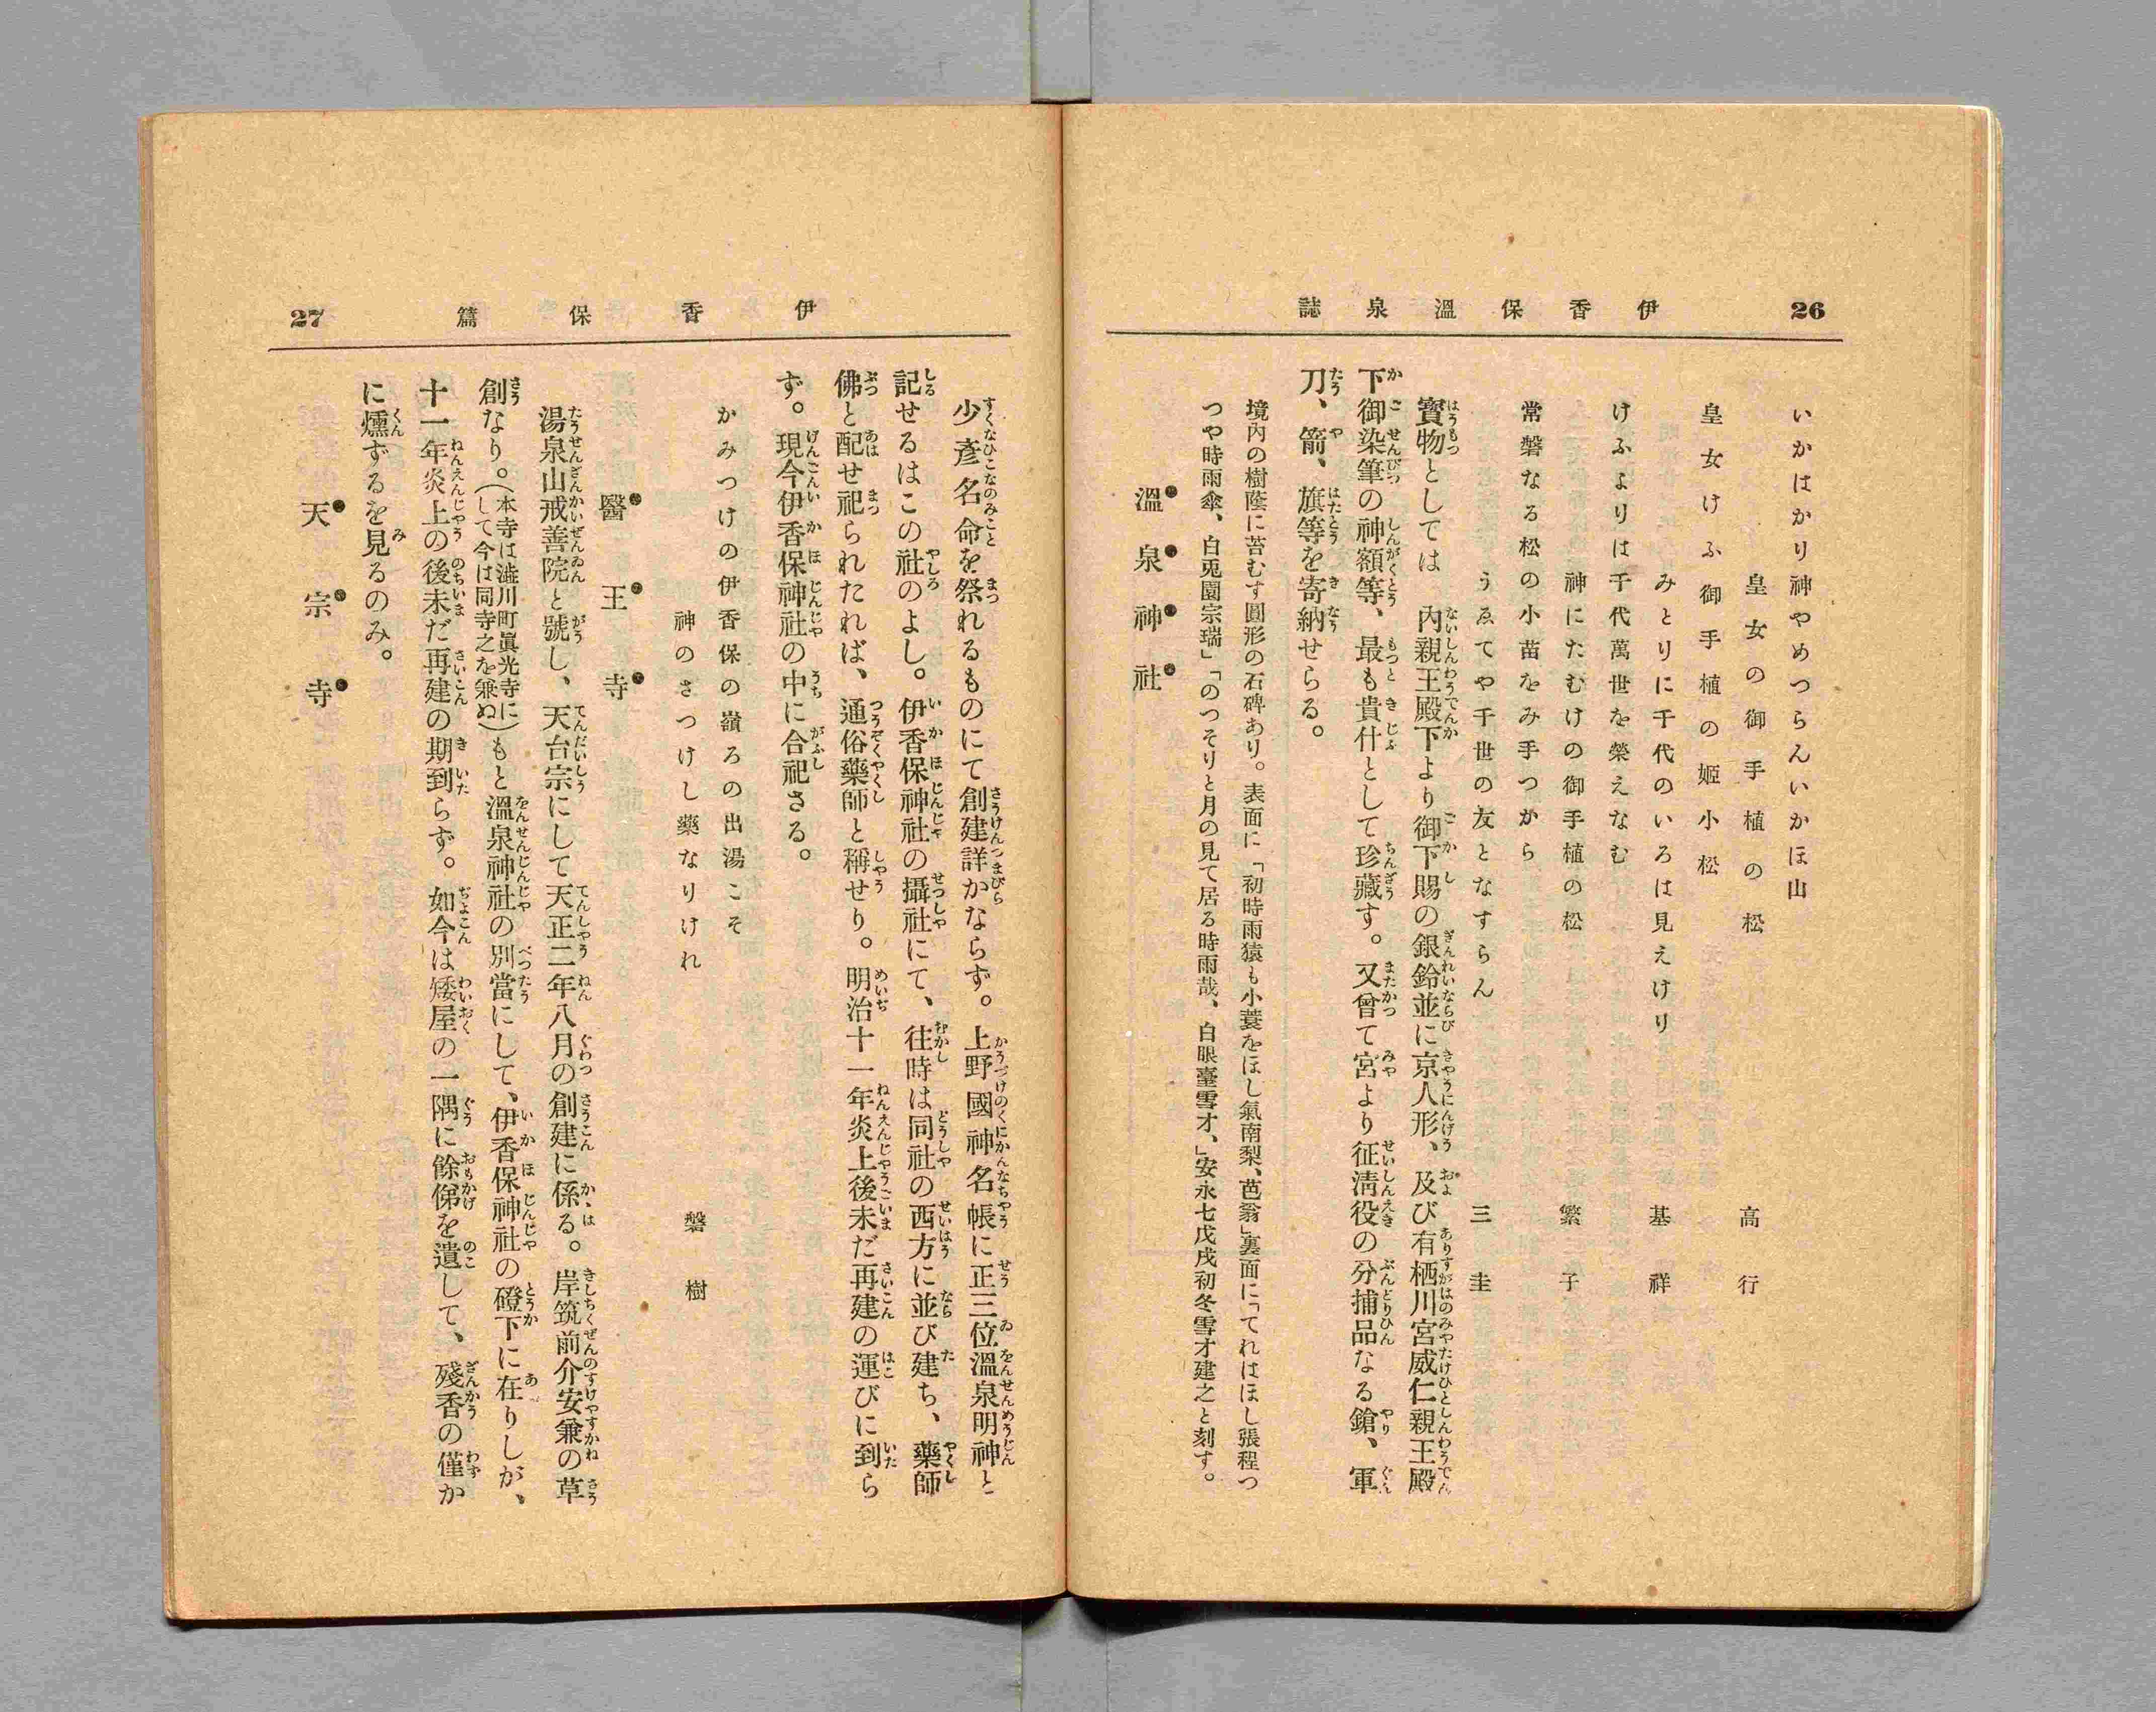 26
伊香保溫泉誌
いかはかり神やめつらんいかほ山
皇女の御手植の松
高行
皇女けふ御手植の姬小松
みとりに千代のいろは見えけり
基祥
けふよりは千代萬世を榮えなむ
神にたむけの御手植の松
繁子
常磐なる松の小苗をみ手つから
うゑてや千世の友となすらん
三圭
寶物としては 內親王殿下より御下賜の銀鈴並に京人形、及び有栖川宮威仁親王殿
下御染筆の神額等、最も貴什として珍藏す。又曾て宮より征淸役の分捕品なる鎗、軍
刀、箭、旗等を寄納せらる。
境內の樹蔭に苔むす圓形の石碑あり。表面に「初時雨猿も小蓑をほし氣南梨、芭翁」裏面に「てれはほし張程つ
つや時雨傘、白兎園宗瑞」「のつそりと月の見て居る時雨哉、白眼臺雪才、」安永七戊戌初冬雪才建之と刻す。
溫泉神社
伊香保篇
27
少彥名命を祭れるものにて創建詳かならず。上野國神名帳に正三位溫泉明神と
記せるはこの社のよし。伊香保神社の攝社にて、往時は同社の西方に並び建ち、藥師
佛と配せ祀られたれば、通俗藥師と稱せり。明治十一年炎上後未だ再建の運びに到ら
ず。現今伊香保神社の中に合祀さる。
かみつけの伊香保の嶺ろの出湯こそ
神のさつけし藥なりけれ
磐樹
醫王寺
湯泉山戒善院と號し、天台宗にして天正二年八月の創建に係る。岸筑前介安兼の草
創なり。(本寺は澁川町眞光寺に
して今は同寺之を兼ぬ)もと溫泉神社の別當にして、伊香保神社の磴下に在りしが、
十一年炎上の後未だ再建の期到らず。如今は矮屋の一隅に餘俤を遺して、殘香の僅か
に燻ずるを見るのみ。
天宗寺